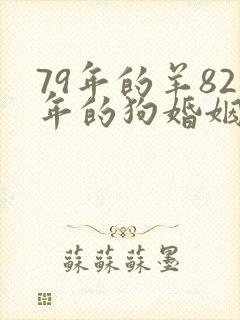 79年的羊82
年的狗婚姻
蘇蘇蘇墨